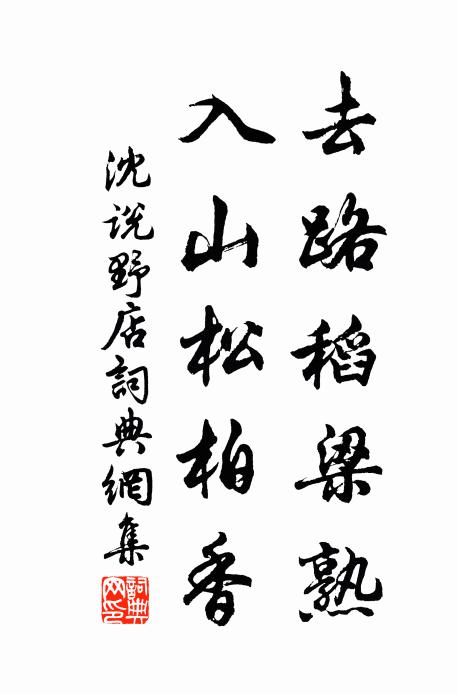 去路稻梁熟
入山松柏香
沈说野店詞典網集
詞典网印